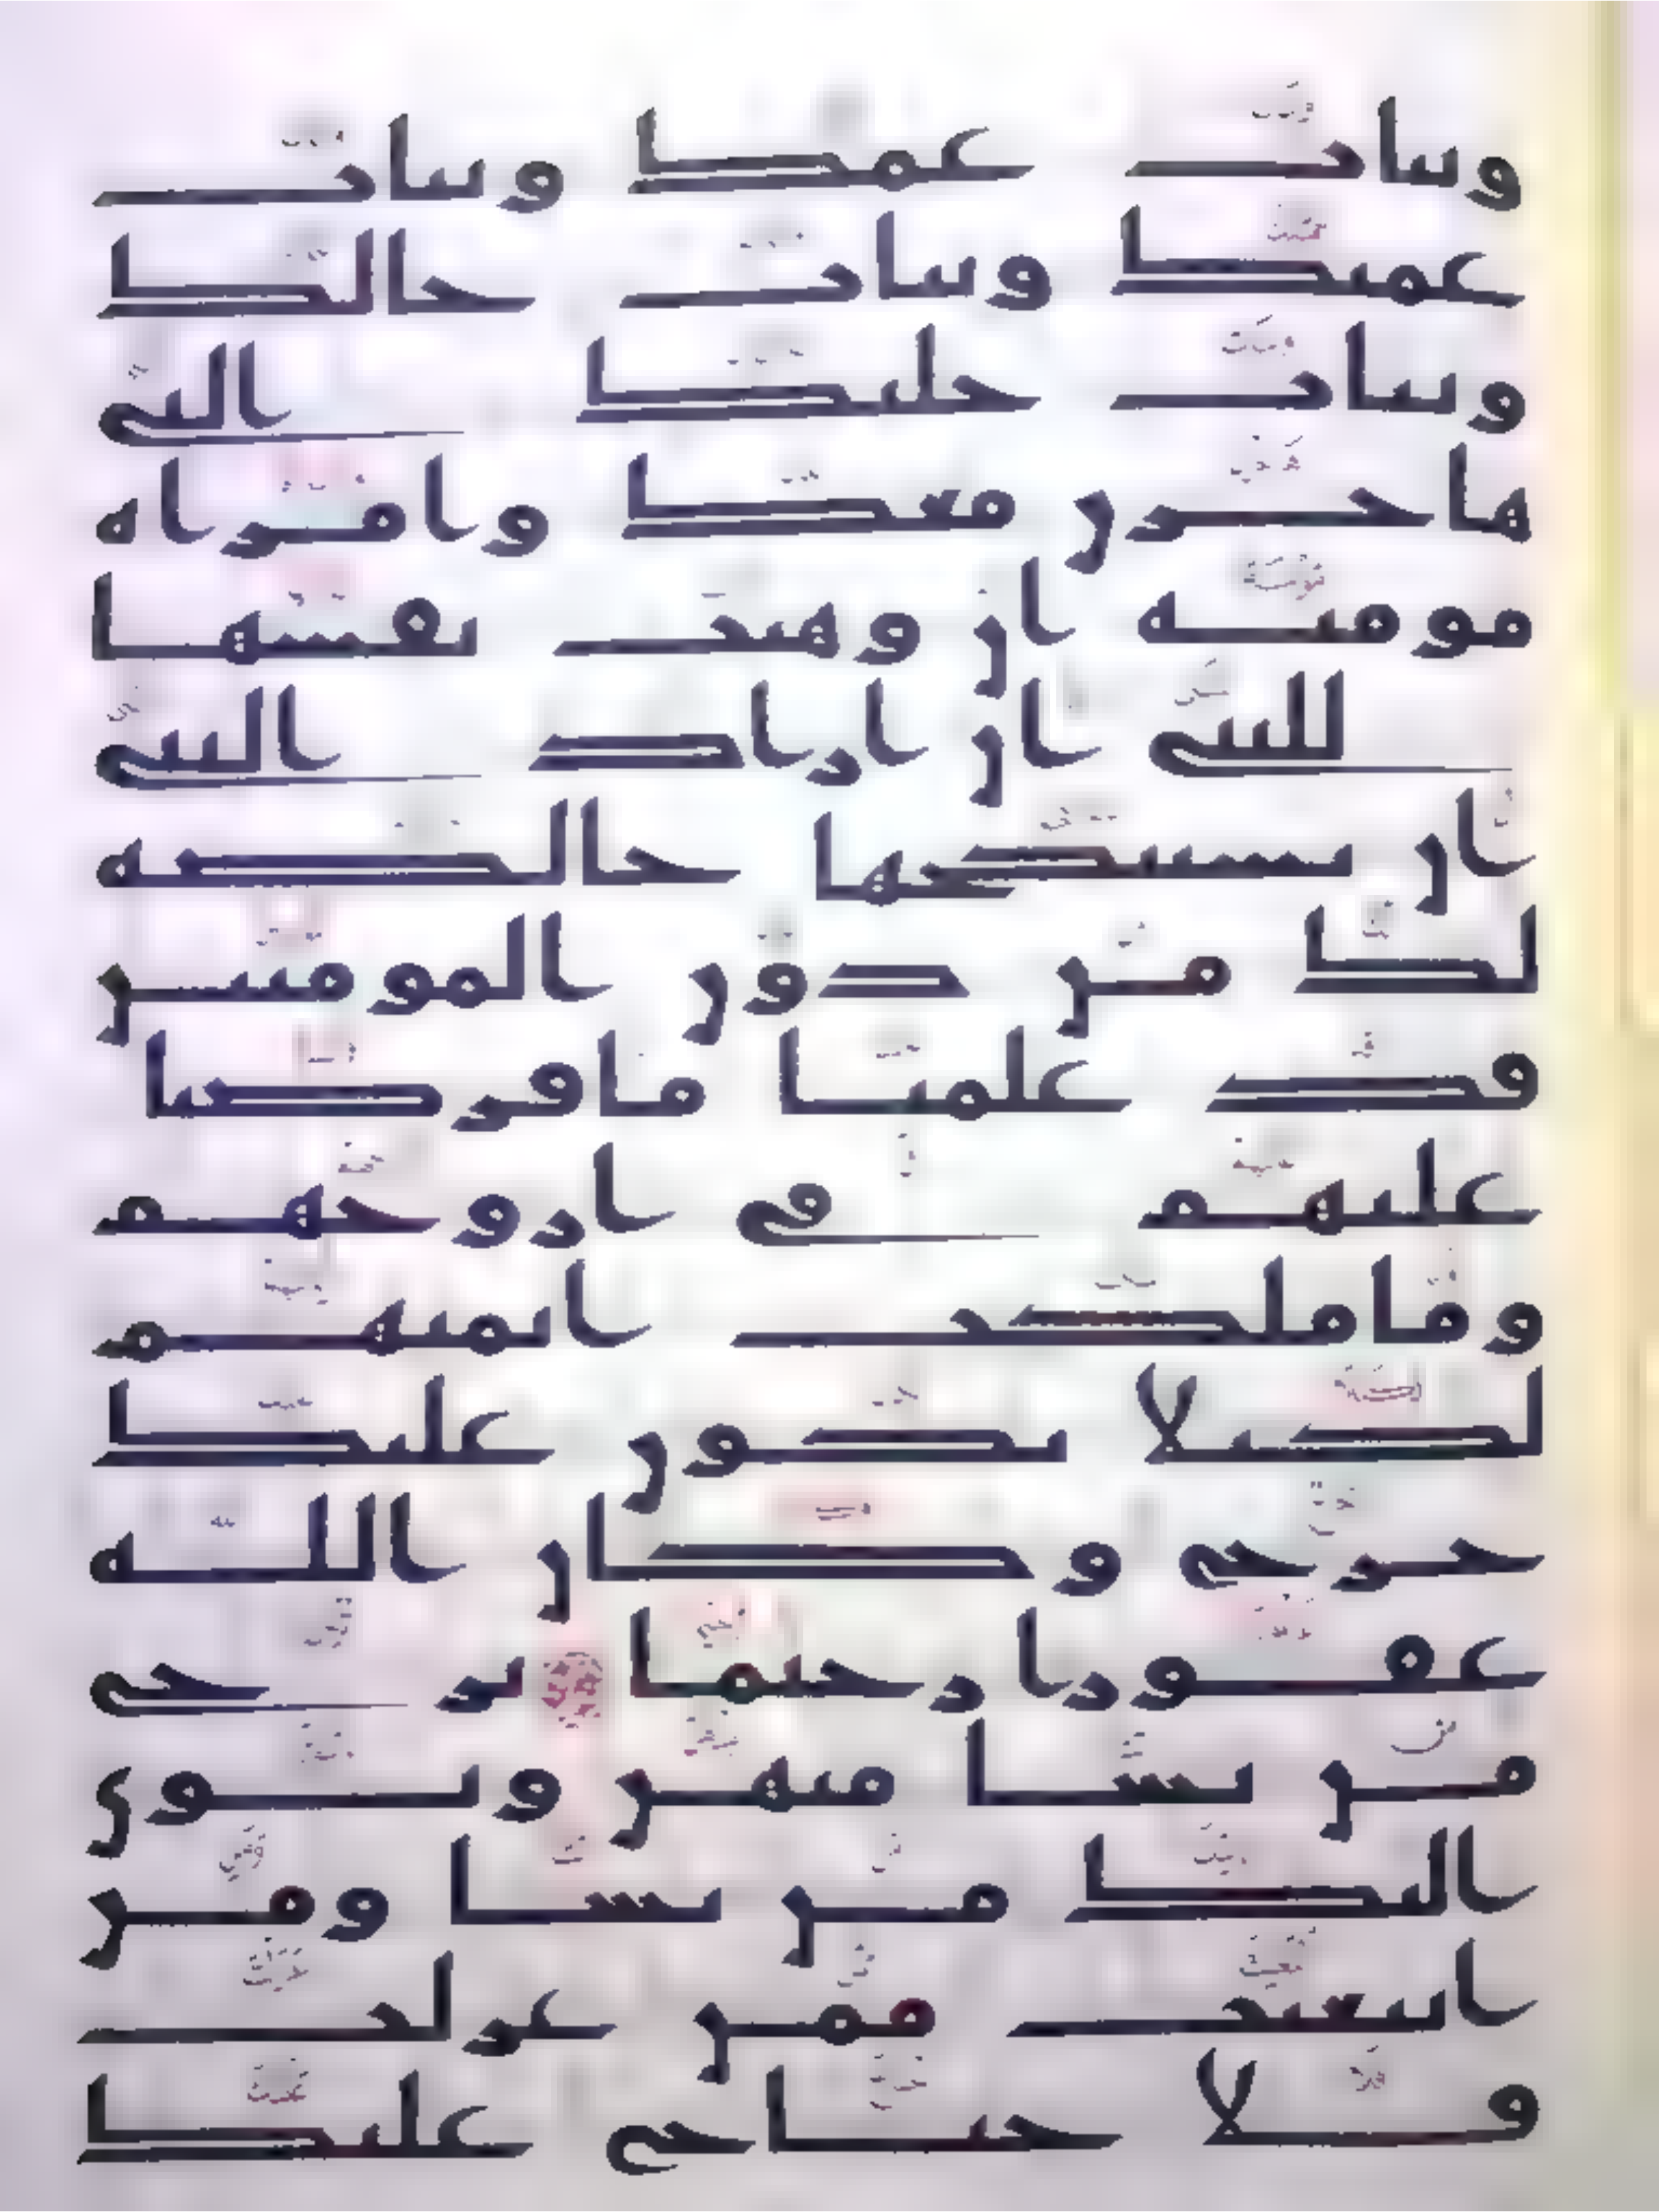 وبنات عمك وبنات
عمتك وبنات خالك
وبنات خلتك التي
هاجرن معك وامراه
مومنه ان وهبت نفسها
للنبي ان اراد النبي
ان يستنكحها خالصه
لك من دون المومنين
قد علمنا ما فرضنا
عليهم في ازوجهم
وما ملكت ايمنهم
لكيلا يكون عليك
حرج وكان الله
غفورا رحيما ترجي
من تشا منهن وتوي
اليك من تشا ومن
ابتغيت ممن عزلت
فلا جناح عليك